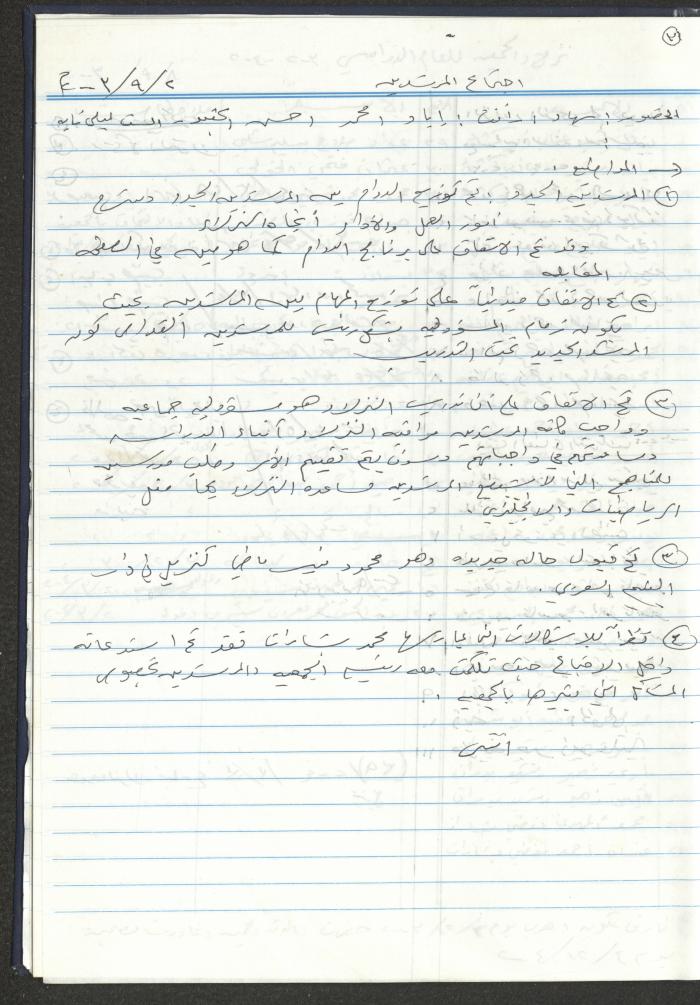 ٢
اجتماع المرشدين ٢/٩/٢٠٠٣
الحضور: سهاد، رأفت، إياد، محمد، احسن، الست ليلى
المواضيع:
① المرشدين الجدد: تم توزيع الدوام بين المرشدين الجدد وشرح
امور العمل والأدوار اتجاه النزلاء
وقد تم الاتفاق على برنامج الدوام كما هو مبين في الصفحة
المقابلة
② تم الاتفاق مبدئياً على توزيع المهام بين المرشدين بحيث
تكون زمام المسؤولية بشكل رئيسي للمرشدين القدامى كون
المرشد الجديد تحت التدريب
③ تم الاتفاق على ان تدريس النزلاء هو مسؤولية جماعية
وواجب كافة المرشدين مراقبة النزلاء أثناء الدراسة
ومساعدتهم في واجباتهم وسوف يتم تقييم الأمر وطلب مدرسين
للمناهج التي لا يستطيع المرشدين مساعدة النزلاء بها مثل
الرياضيات والانجليزي.
③ تم قبول حالة جديدة وهو محمود كنزيل في دار
اليتيم العربي.
④ نظراً للاشكالات التي يمارسها محمد فقد تم استدعائه
داخل الاجتماع حيث تكلمت معه رئيسة الجمعية والمرشدين بخصوص
المشاكل التي يثيرها بالجمعية.
انتهى